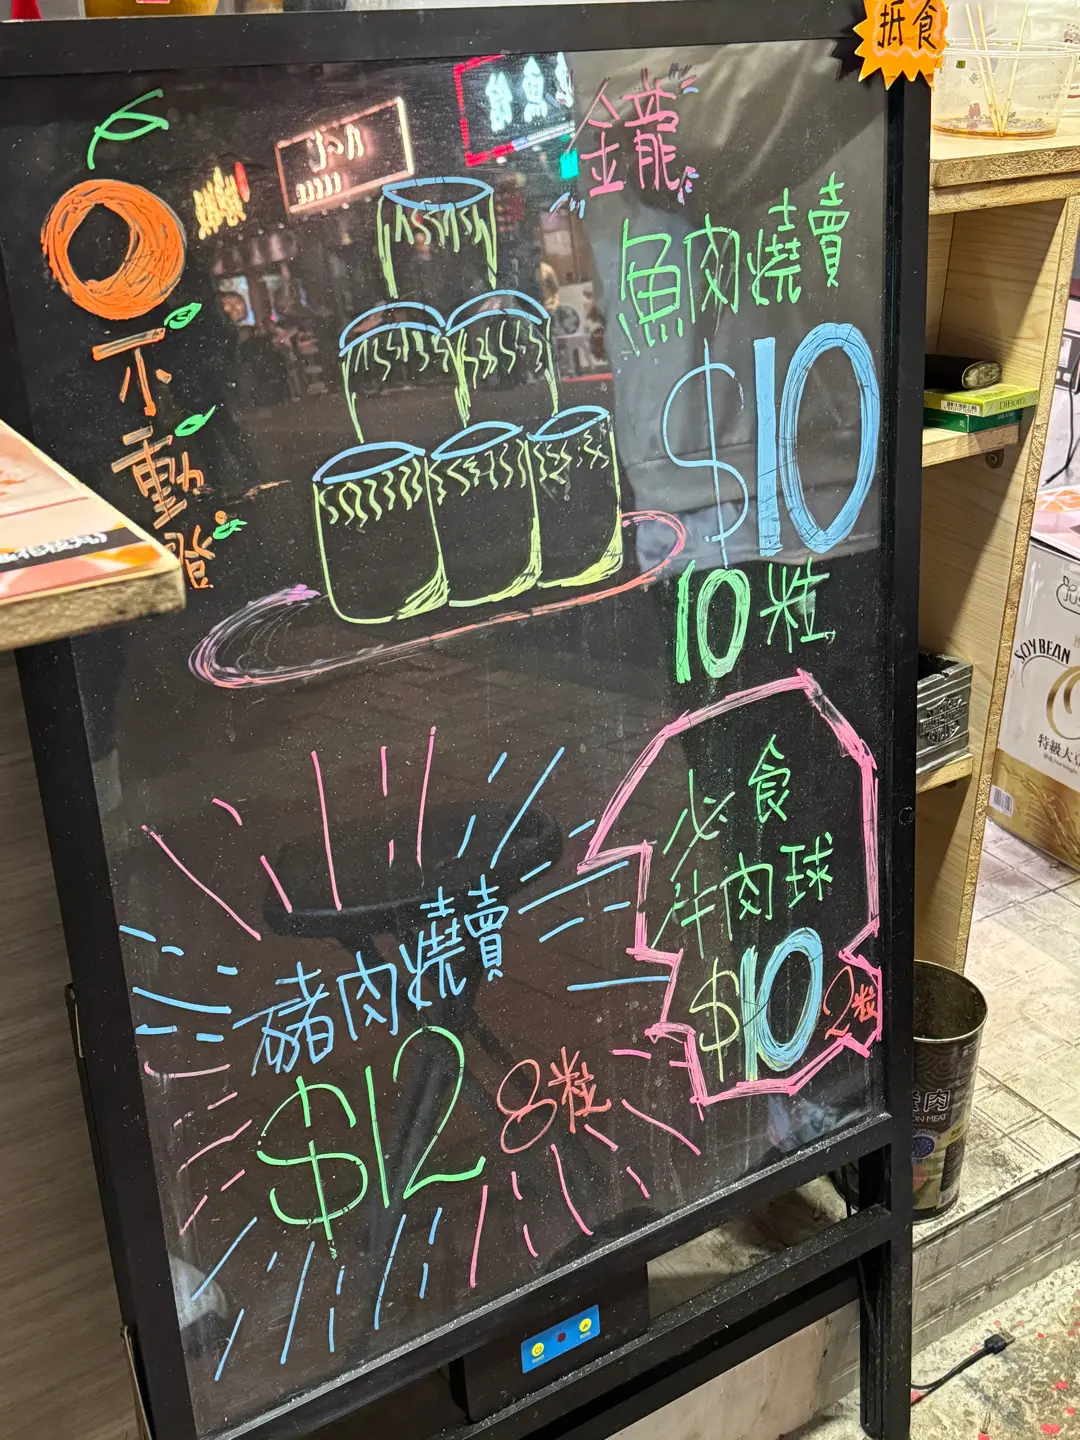 抵食
金龍
魚肉燒賣
$10
10粒
不
動
必食
牛肉球
$10 2粒
豬肉燒賣
$12 8粒
SOYBEAN
特級大豆
DiBono
肉
ON MEAT